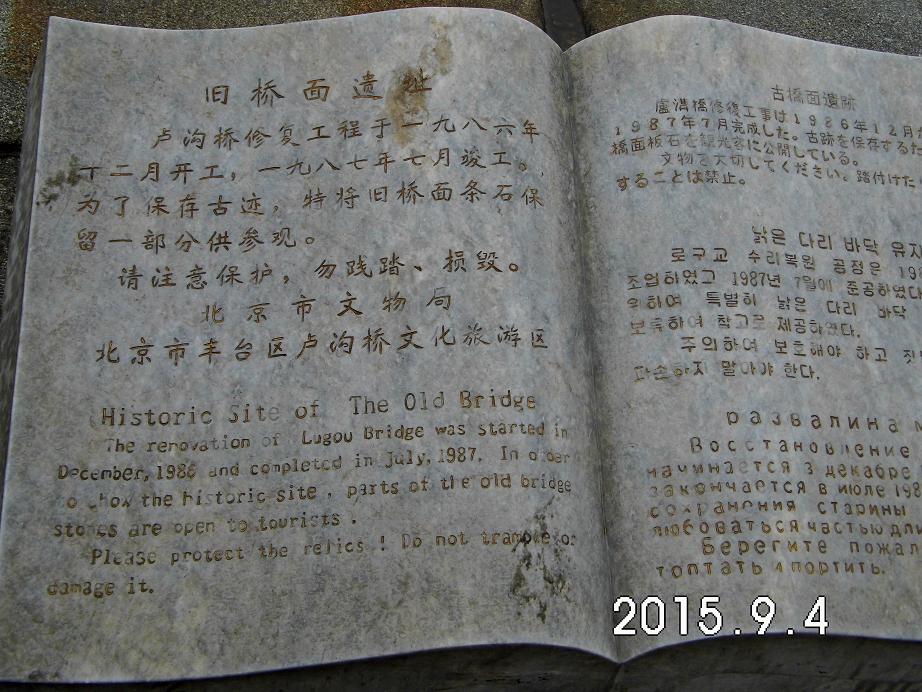 旧桥面遗址
卢沟桥修复工程于一九八六年
十二月开工，一九八七年七月竣工。
为了保存古迹，特将旧桥面条石保
留一部分供参观。
请注意保护，勿践踏、损毁。
北京市文物局
北京市丰台区卢沟桥文化旅游区
Historic Site of The Old Bridge
The renovation of Lugou Bridge was started in
December, 1986 and completed in july, 1987. In order
to show the historic site, parts of the old bridge
stones are open to tourists.
Please protect the relics! Do not trample or
damage it.
古橋面遺跡
盧溝橋修復工事は1986年12月
1987年7月完成した。古跡を保存するた
橋面板石を観光客に公開している。
文物を大切してください。踏付けた
することは禁止。
낡은 다리 바닥 유지
로구교 수리복원 공정은 19
조업하였고 1987년 7월에 준공하였다
위하여 특별히 낡은 다리 바닥
보류하여 참고로 제공하였다.
주의하여 보호해야 하고 짓
파손하지 말아야 한다.
развалина м
Восстановление
начинается 3 декабре
закончается в июле 198
сохранения старины
любоваться частью дли
Берегите пожал
топтать и портить.
2015.9.4